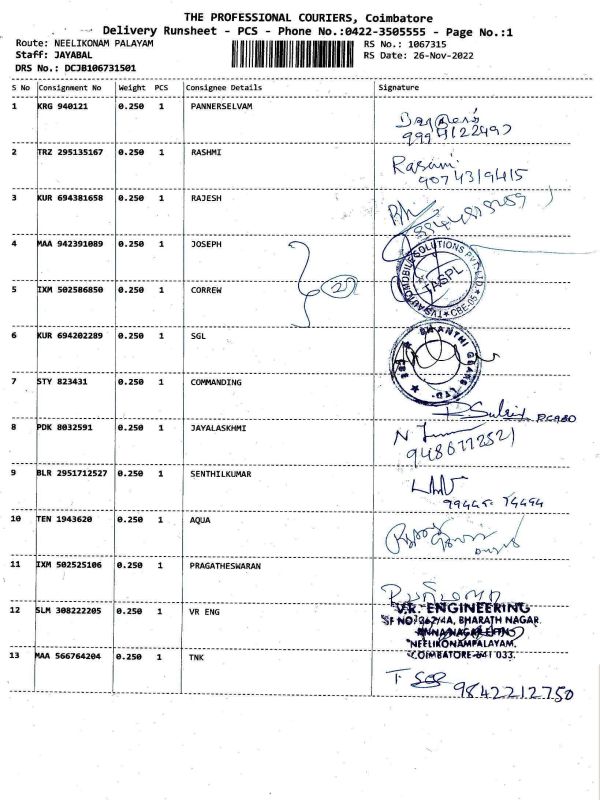 THE PROFESSIONAL COURIERS, Coimbatore
Delivery Runsheet - PCS - Phone No.:0422-3505555 - Page No.:1
Route: NEELIKONAM PALAYAM
RS No.: 1067315
Staff: JAYABAL
RS Date: 26-Nov-2022
DRS No.: DCJB106731501
S No Consignment No Weight PCS Consignee Details Signature
1 KRG 940121 0.250 1 PANNERSELVAM
9994122497
2 TRZ 295135167 0.250 1 RASHMI
Rasmi
9074319415
3 KUR 694381658 0.250 1 RAJESH
4 MAA 942391089 0.250 1 JOSEPH
TVS AUTOMOBILE SOLUTIONS PVT LTD
TASPL
CBE-05
5 IXM 502586850 0.250 1 CORREW
6 KUR 694202289 0.250 1 SGL
SHANTHI GEARS LTD.
7 STY 823431 0.250 1 COMMANDING
8 PDK 8032591 0.250 1 JAYALASKHMI
9486772521
9 BLR 2951712527 0.250 1 SENTHILKUMAR
10 TEN 1943620 0.250 1 AQUA
11 IXM 502525106 0.250 1 PRAGATHESWARAN
12 SLM 308222205 0.250 1 VR ENG
V.R. ENGINEERING
SF NO: 362/4A, BHARATH NAGAR.
NEELIKONAMPALAYAM,
COIMBATORE-641 033.
13 MAA 566764204 0.250 1 TNK
9842212750